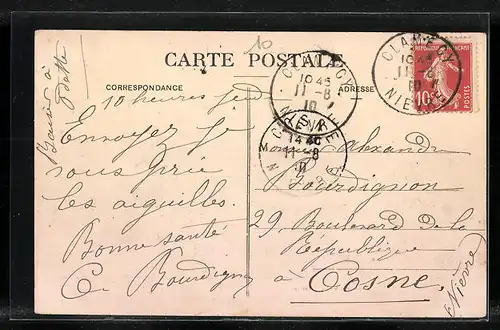 10
CARTE POSTALE
CORRESPONDANCE
ADRESSE
CLAMECY
10 45
11 - 8
10
NIEVRE
CLAMECY
10 45
11 - 8
10
NIEVRE
REPUBLIQUE FRANÇAISE
10c
POSTES
COSNE
14 40
11 - 8
10
10 heures jeudi
Envoyez je
vous prie
les aiguilles.
Bonne santé
C. Bourdignon
Baiser à
Odette
Monsieur Alexandre
Bourdignon
29, Boulevard de la
République
à Cosne
(Nièvre)